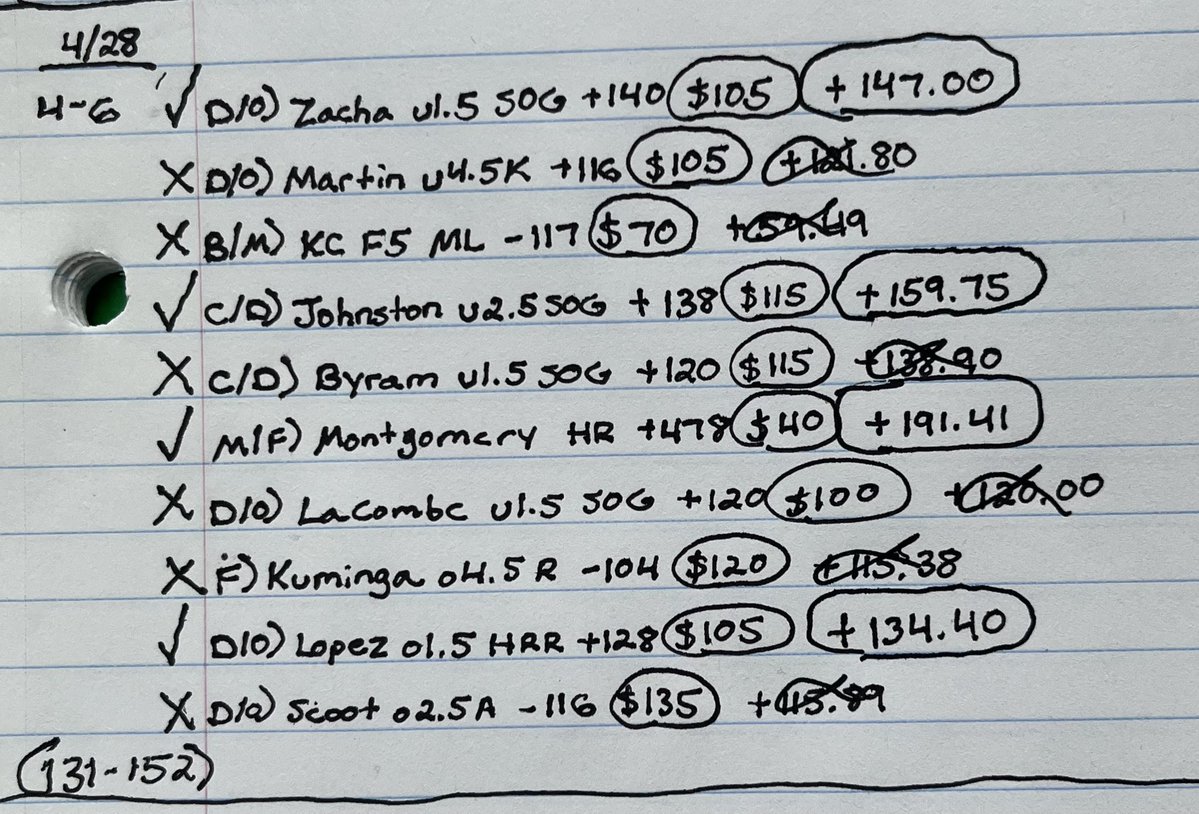 4/28
4-6 ✓ D/O) Zacha u1.5 SOG +140 $105 +147.00
X D/O) Martin u4.5K +116 $105 +121.80
X B/M) KC F5 ML -117 $70 +59.49
✓ C/D) Johnston u2.5 SOG +138 $115 +159.75
X C/D) Byram u1.5 SOG +120 $115 +138.90
✓ M/F) Montgomery HR +478 $40 +191.41
X D/O) Lacombe u1.5 SOG +120 $100 +120.00
X F) Kuminga o4.5 R -104 $120 +115.38
✓ D/O) Lopez o1.5 HRR +128 $105 +134.40
X D/O) Scoot o2.5A -116 $135 +115.89
(131-152)